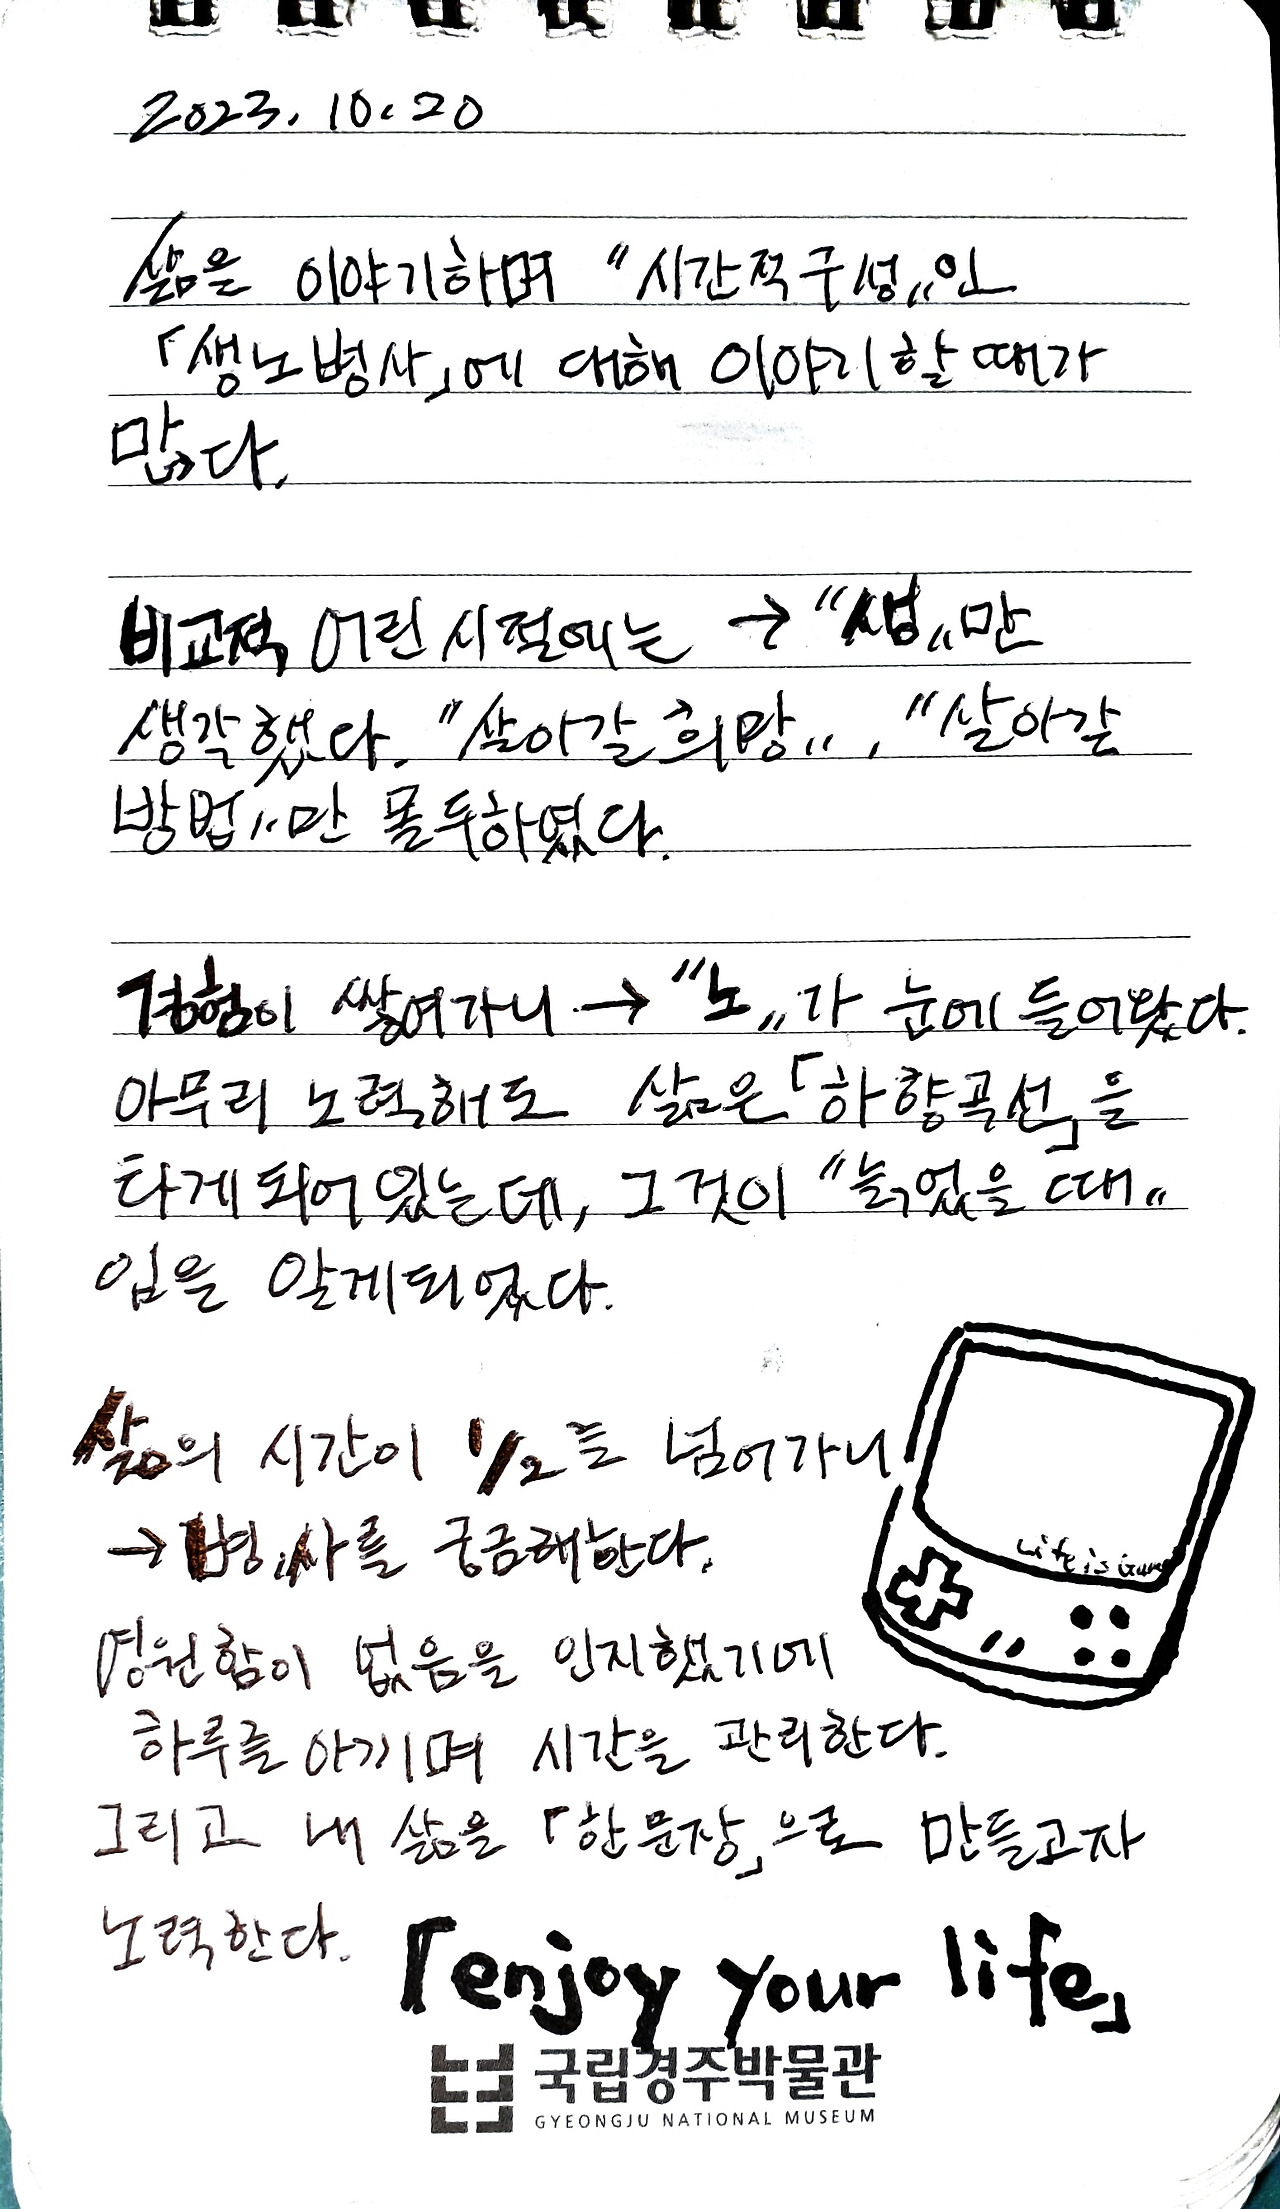 2023. 10. 20
삶을 이야기하며 "시간적구성"인
「생노병사」에 대해 이야기할 때가
많다.
비교적 어린 시절에는 → "생"만
생각했다. "살아갈 희망", "살아갈
방법"만 몰두하였다.
경험이 쌓여가니 → "노"가 눈에 들어왔다.
아무리 노력해도 삶은 「하향곡선」을
타게 되어 있는데, 그것이 "늙었을 때"
임을 알게되었다.
삶의 시간이 1/2를 넘어가니
→ 병, 사를 궁금해한다.
Life is Game
영원함이 없음을 인지했기에
하루를 아끼며 시간을 관리한다.
그리고 내 삶을 「한문장」으로 만들고자
노력한다. 「enjoy your life」
국립경주박물관
GYEONGJU NATIONAL MUSEUM